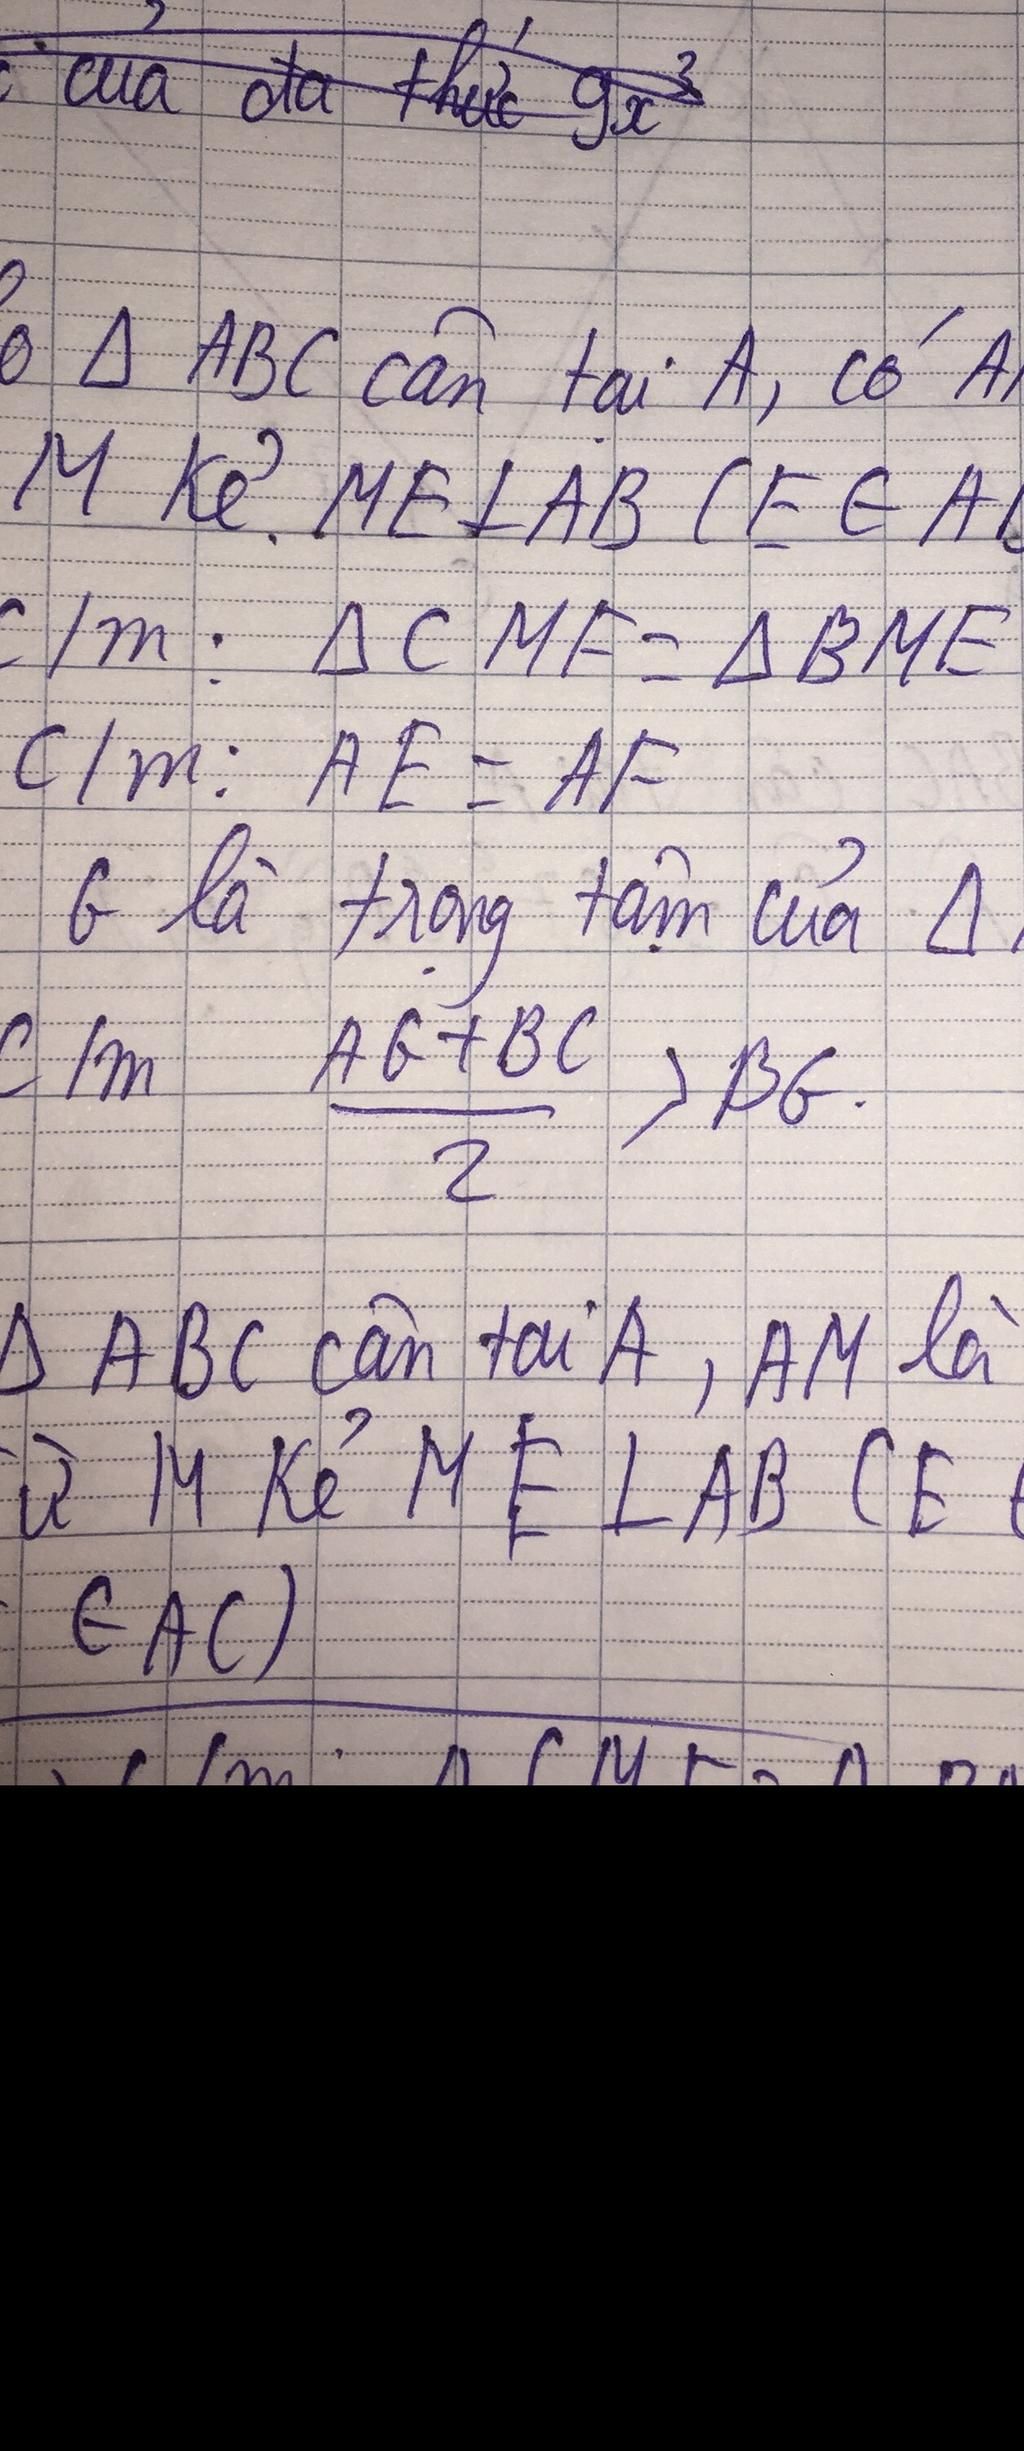 của đa thức 9x³
Δ ABC cân tại A, có
M kẻ ME⊥AB (E ∈
C/m: ΔCMF = ΔBME
C/m: AE = AF
G là trọng tâm của Δ
C/m (AG+BC)/2 > BG.
Δ ABC cân tại A, AM là
M kẻ ME ⊥ AB (E ∈
∈ AC)
C/m: Δ CMF = Δ